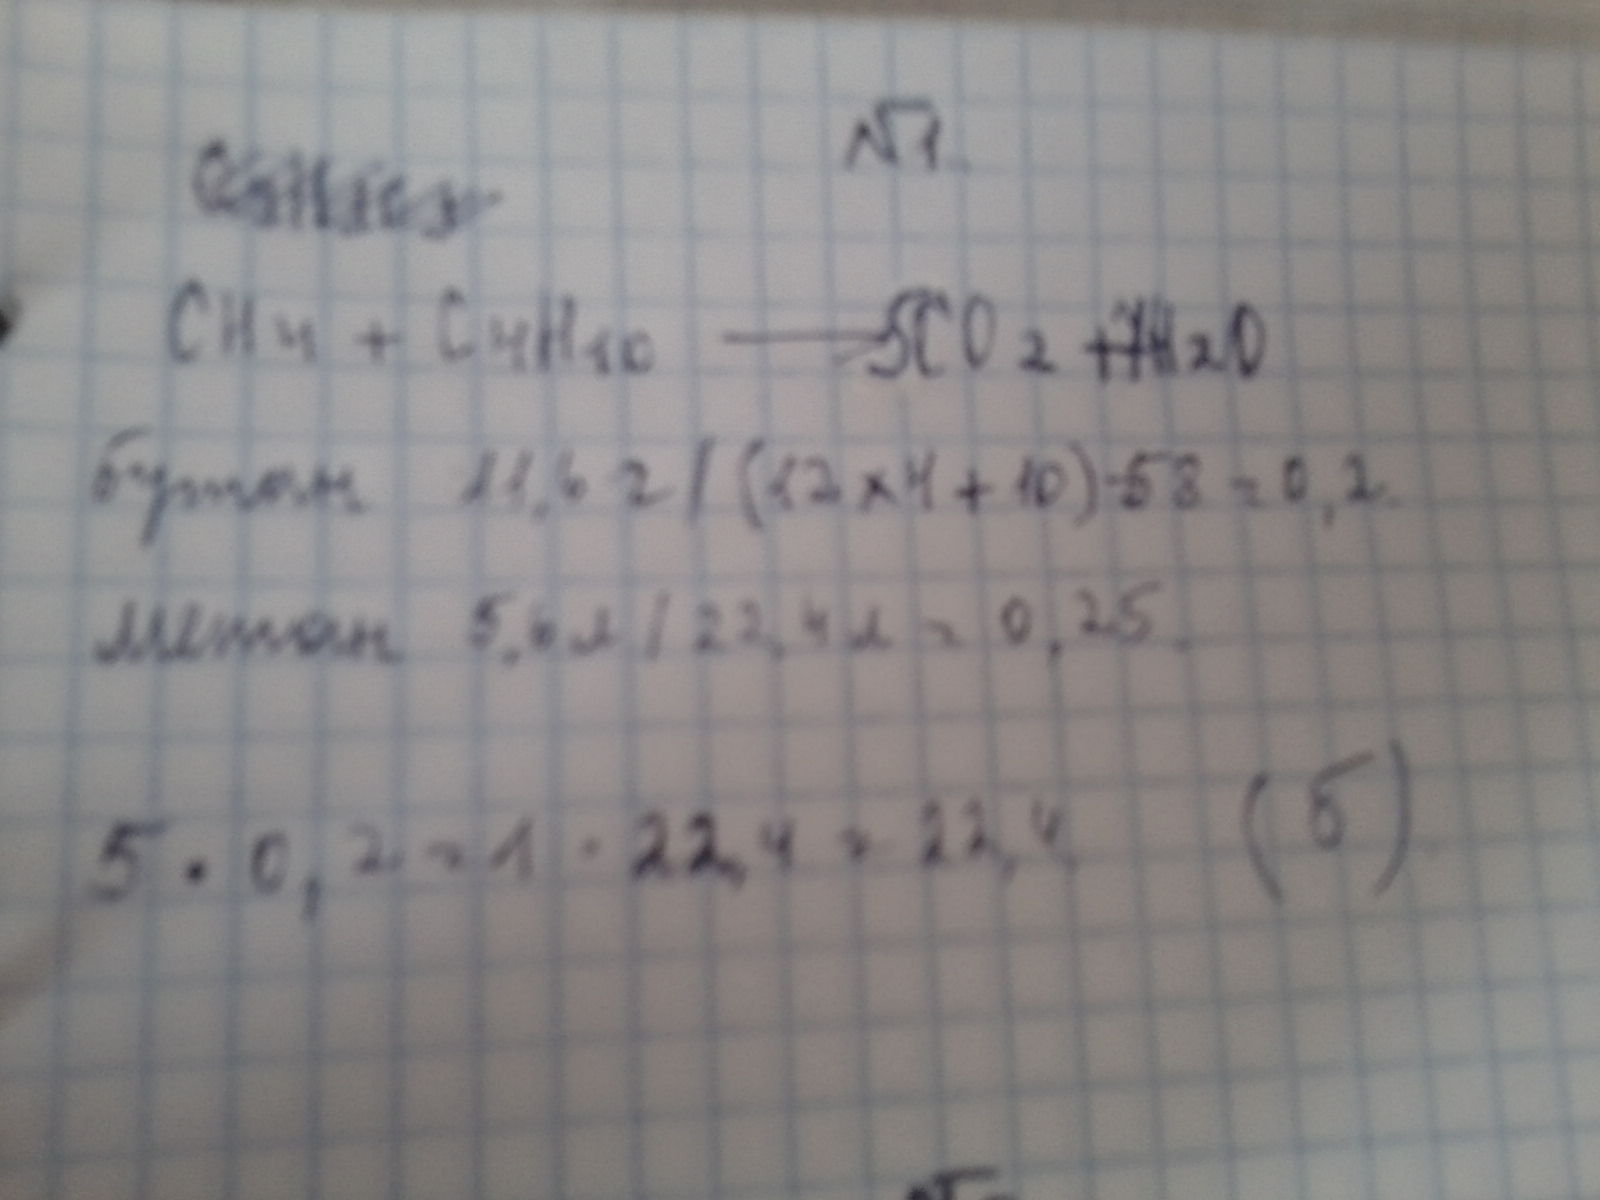 №1.
CH4 + C4H10 → 5CO2 + 7H2O
бутан 11,6г/(12×4+10)-58=0,2.
метан 5,6л/22,4л = 0,25.
5·0,2=1·22,4=22,4 (б)